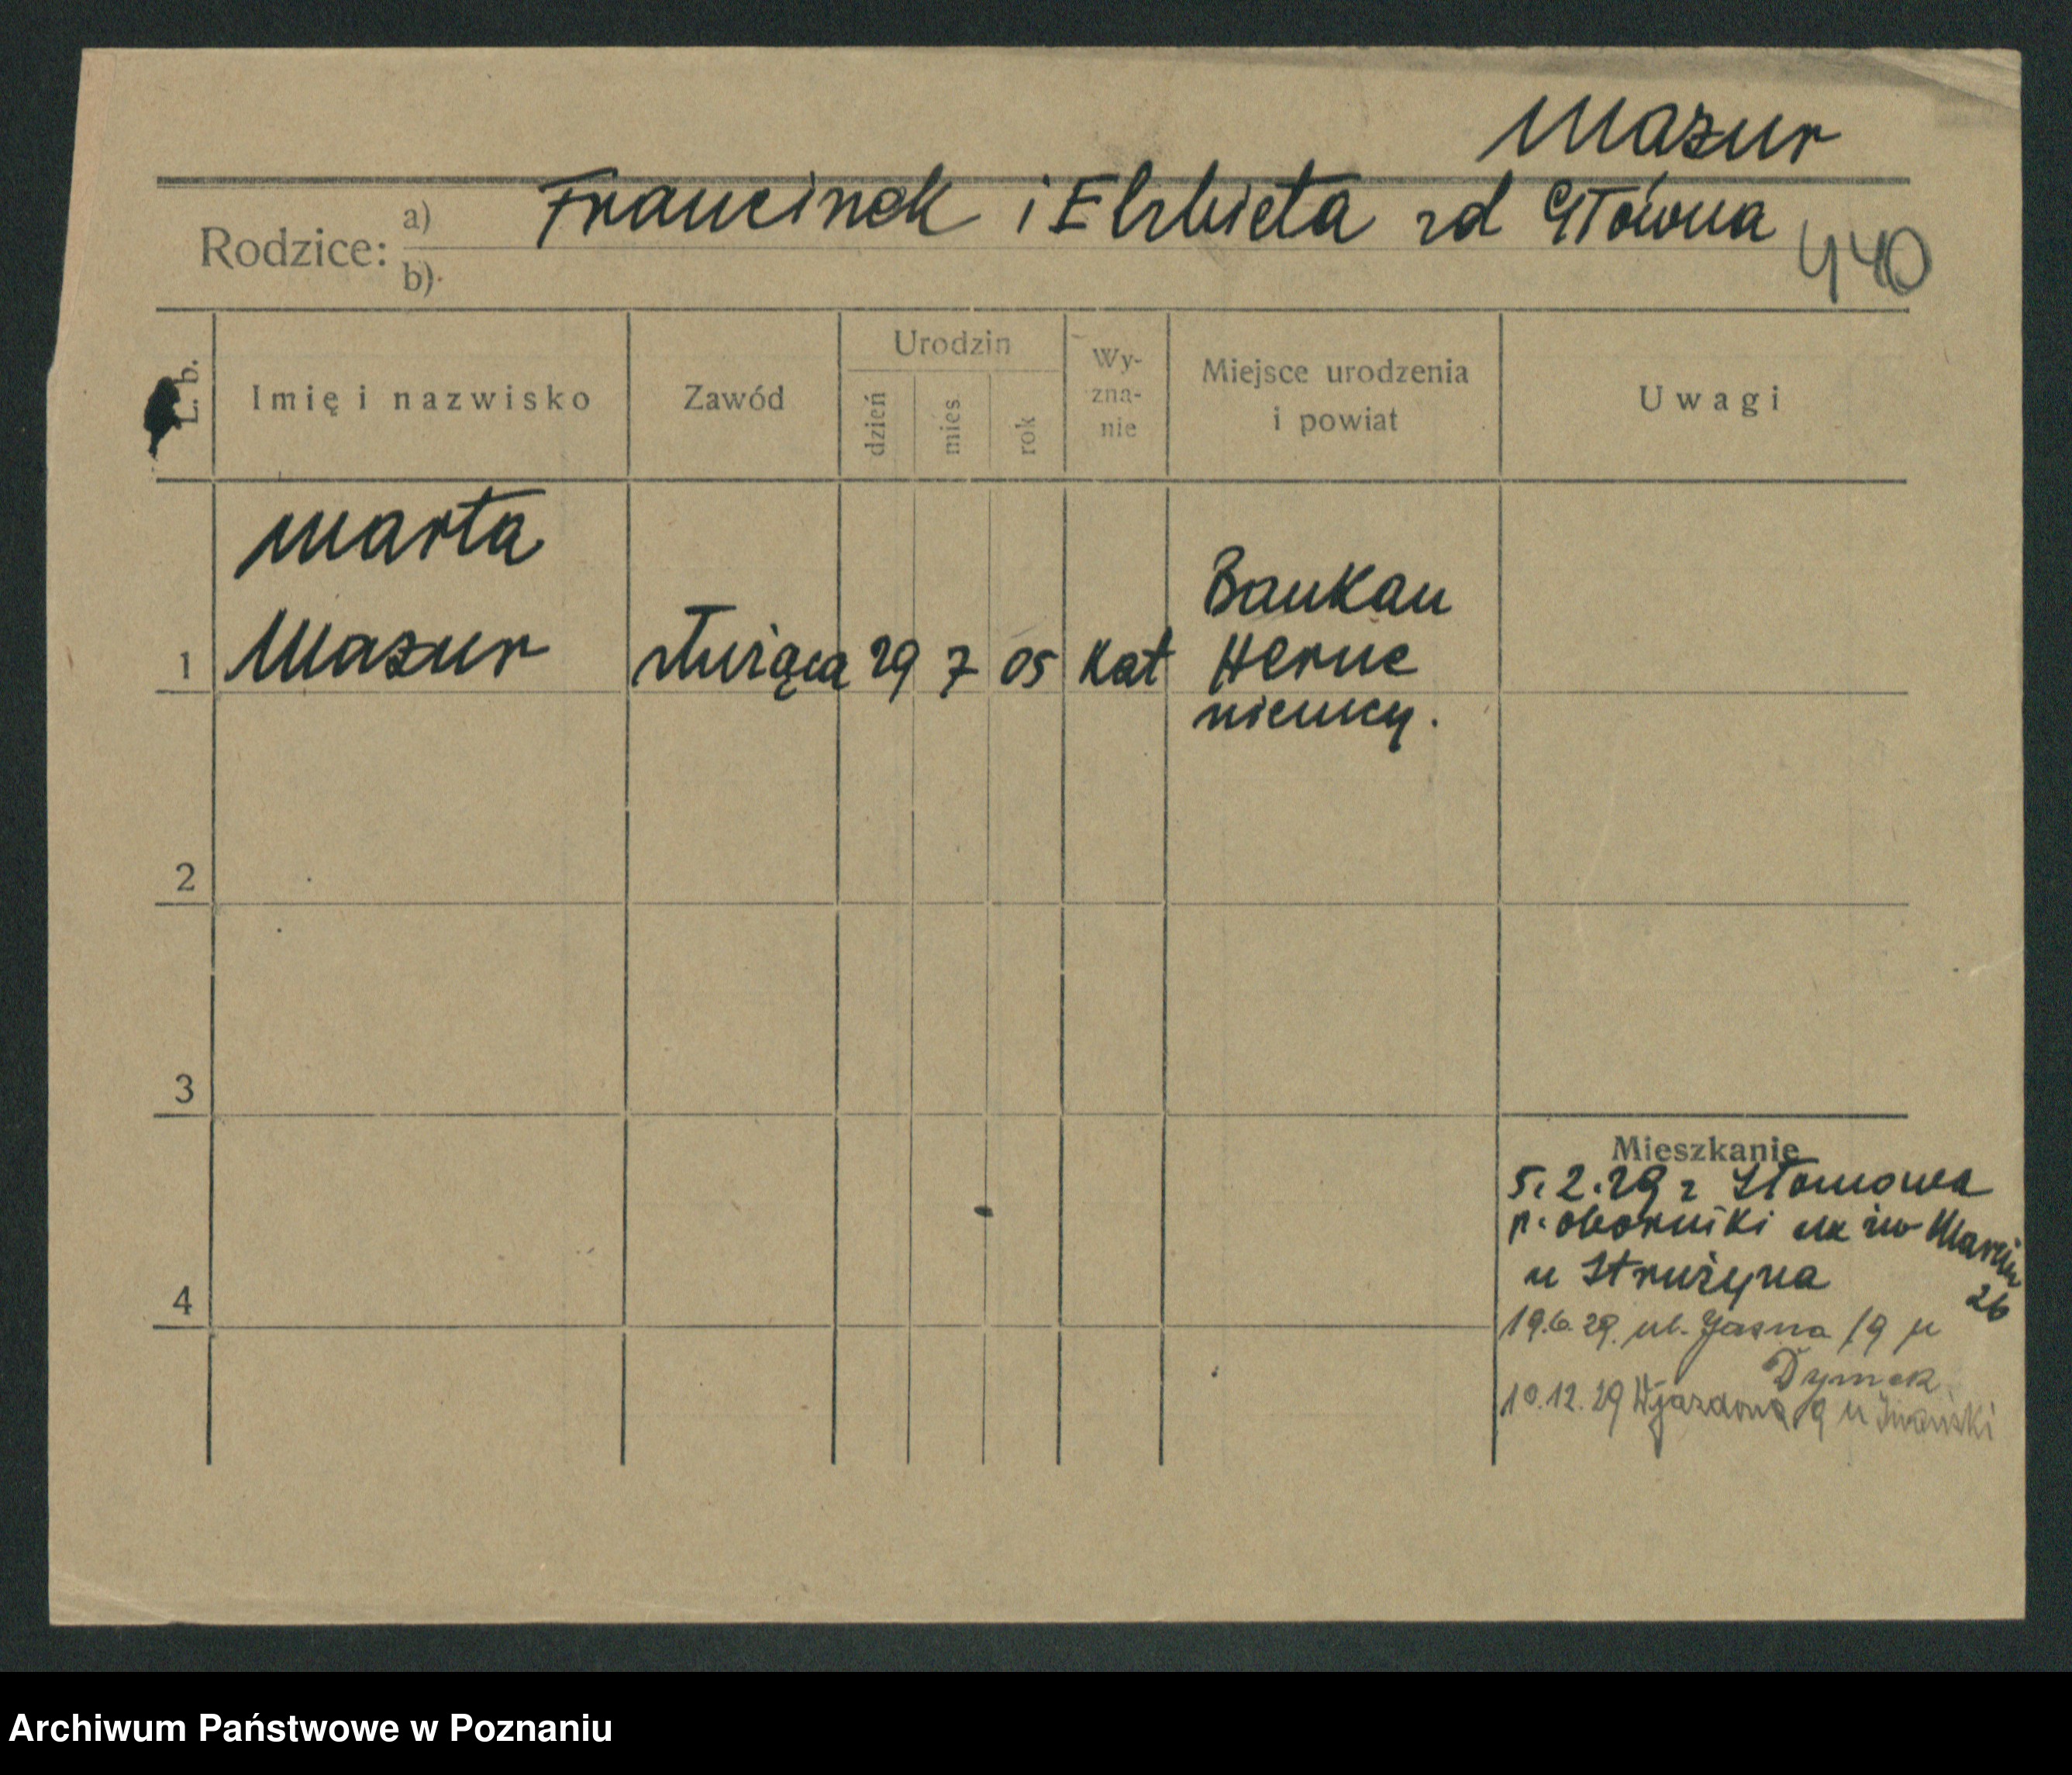 Mazur
Rodzice: a) Francinek i Elrbieta zd Główna
b)
440
L. b.
Imię i nazwisko
Zawód
Urodzin
dzień
mies.
rok
Wy-
zna-
nie
Miejsce urodzenia
i powiat
Uwagi
Marta
1 Mazur służąca 29 7 05 Kat
Baukau
Herne
niemcy.
2
3
4
Mieszkanie
5.2.29 z Słomowa
p. oborniki św Marcin
26
u Strużyna
19.6.29. ul. Jasna 19 u
Dymek
10.12.29 Wjazdowa 9 u
Archiwum Państwowe w Poznaniu